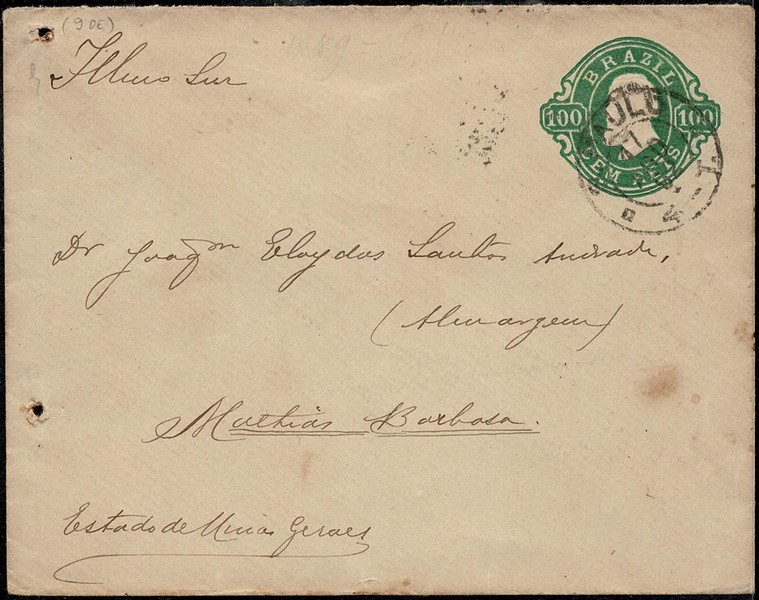 (9 DE)
Illmo Snr
BRAZIL
100 100
CEM REIS
PAULO
Dr Joaqm Eloy dos Santos Andrade,
(Almargem)
Mathias Barbosa.
Estado de Minas Geraes